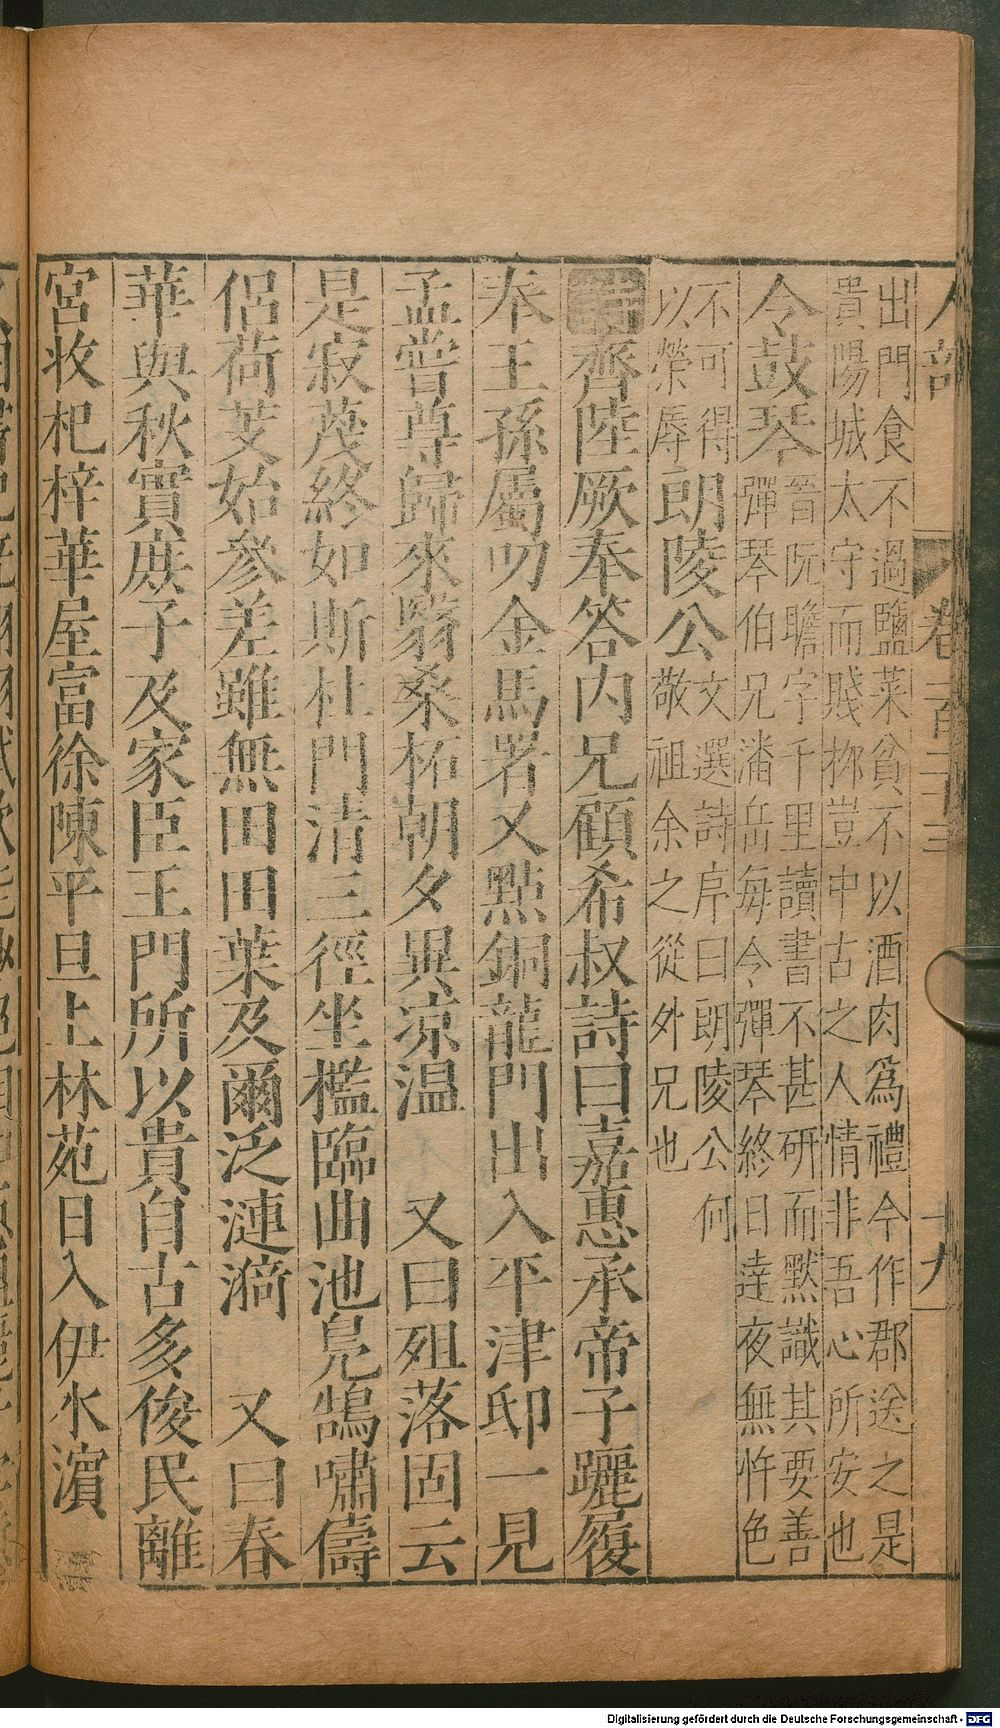 人部
卷
十九
出門食不過鹽菜貧不以酒肉爲禮今作郡送之是
貴陽城太守而賤豈中古之人情非吾心所安也
令鼓琴
晉阮瞻字千里讀書不甚研而默識其要善
彈琴伯兄潘岳每令彈琴終日達夜無忤色
不可得
以榮辱
朗陵公
文選詩序曰朗陵公何
敬祖余之從外兄也
詩
齊陸厥奉答内兄顧希叔詩曰嘉惠承帝子躧履
奉王孫屬叨金馬署又點銅龍門出入平津邸一見
孟嘗尊歸來翳桑柘朝夕異涼温 又曰殂落固云
是寂蔑終如斯杜門清三徑坐檻臨曲池鳧鵠嘯儔
侶荷芰始參差雖無田田葉及爾泛漣漪 又曰春
華與秋實庶子及家臣王門所以貴自古多俊民離
宮收杞梓華屋富徐陳平旦上林苑日入伊水濱
Digitalisierung gefördert durch die Deutsche Forschungsgemeinschaft - DFG